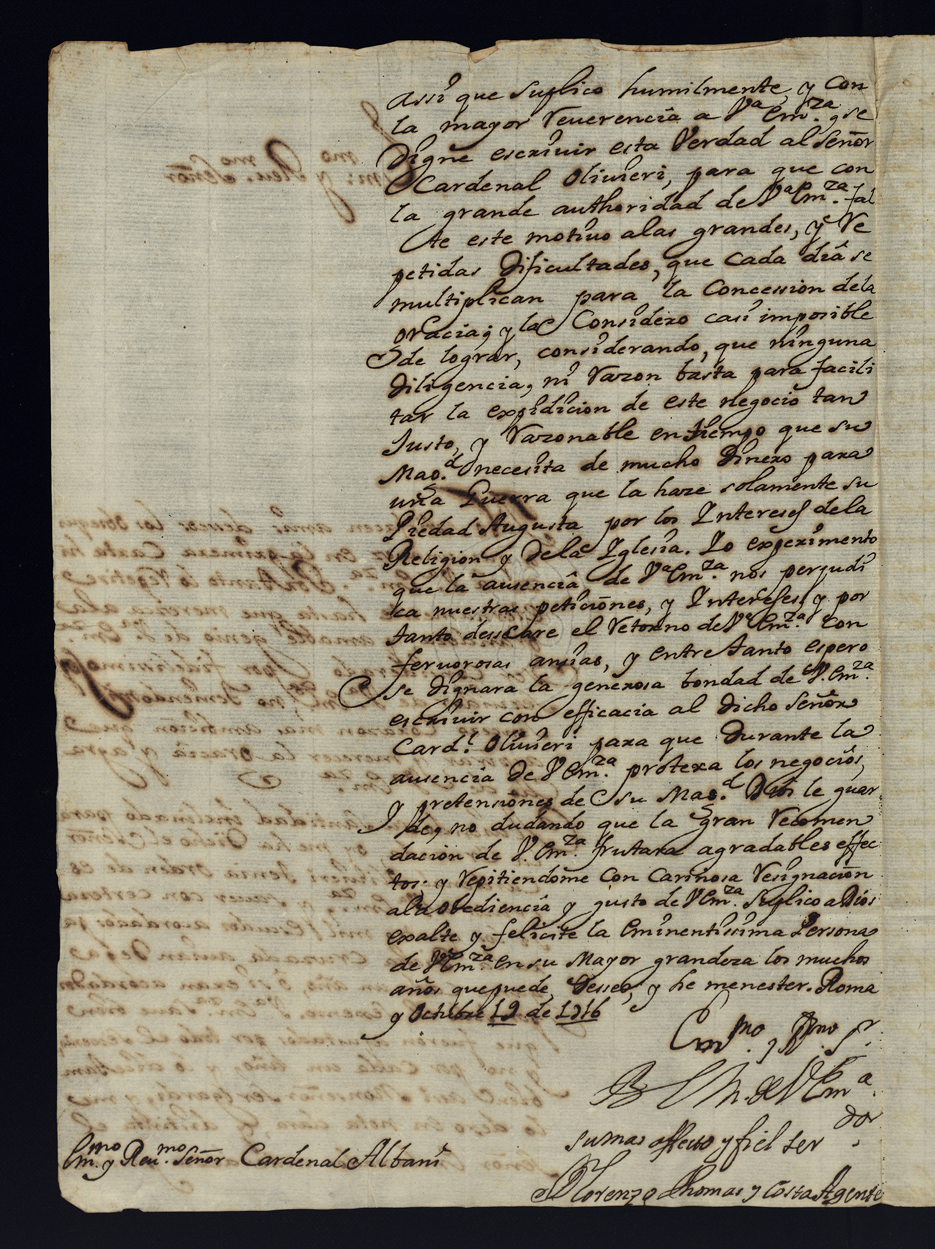 assi que suplico humilmente, y con
la mayor reverencia a Va. Emza. qe se
digne escrivir esta Verdad al Señor
Cardenal Olivieri, para que con
la grande authoridad de Va. Emza. fal
te este motivo a las grandes, y re
petidas dificultades, que cada dia se
multiplican para la Concession de la
Gracia; y la Considero casi imposible
de lograr, considerando, que ninguna
diligencia, ni razon basta para facili
tar la expedicion de este negocio tan
Justo, y razonable en tiempo que su
Magd. necesita de mucho dinero para
una Guerra que la haze solamente su
Piedad Augusta por los Intereses de la
Religion y de la Iglesia. Yo experimento
que la ausencia de Va. Emza. nos perjudi
ca nuestras peticiones, y Intereses, y por
tanto desseare el retorno de V. Emza. con
fervorosas ansias, y entre tanto espero
se dignara la generosa bondad de V. Emza.
escrivir con efficacia al dicho Señor
Cardl. Olivieri para que durante la
ausencia de V. Emza. protexa los negocios,
y pretensiones de su Magd. Dios le guar
de, no dudando que la gran recomen
dacion de V. Emza. frutara agradables effec
tos; y repitiendome con Cariñosa resignacion
a la obediencia y gusto de V. Emza. Suplico a Dios
exalte y felicite la Eminentissima Persona
de V. Emza. en su Mayor grandeza los muchos
años que puede, dessea, y he menester. Roma
y Octubre 12 de 1716
Emmo. y Rmo. Sr.
B L M de V Ema
su mas affecto y fiel ser
dor
Lorenzo Thomas y Costa Agente
Emmo. y Revmo. Señor Cardenal Albani